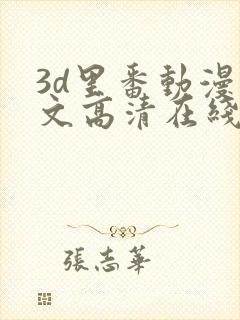 3d里番動漫
文高清在綫
張志華